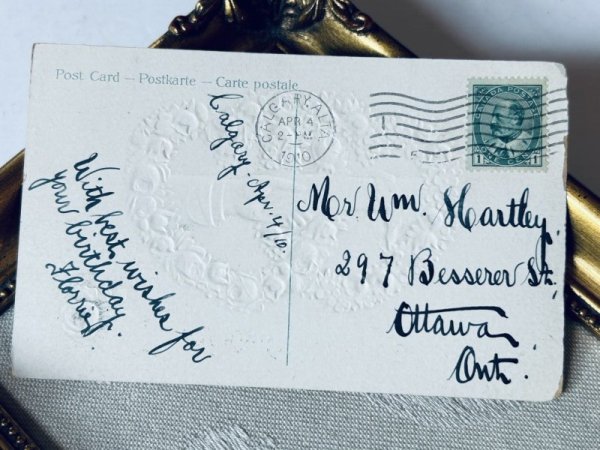 Post Card — Postkarte — Carte postale
Calgary. Apr. 4/10.
With best wishes for
your birthday.
Florrie
CALGARY, ALTA.
APR 4
2-PM
1910
CANADA POSTAGE
1 1
Mr. Wm. Hartley.
297 Besserer St.
Ottawa
Ont.